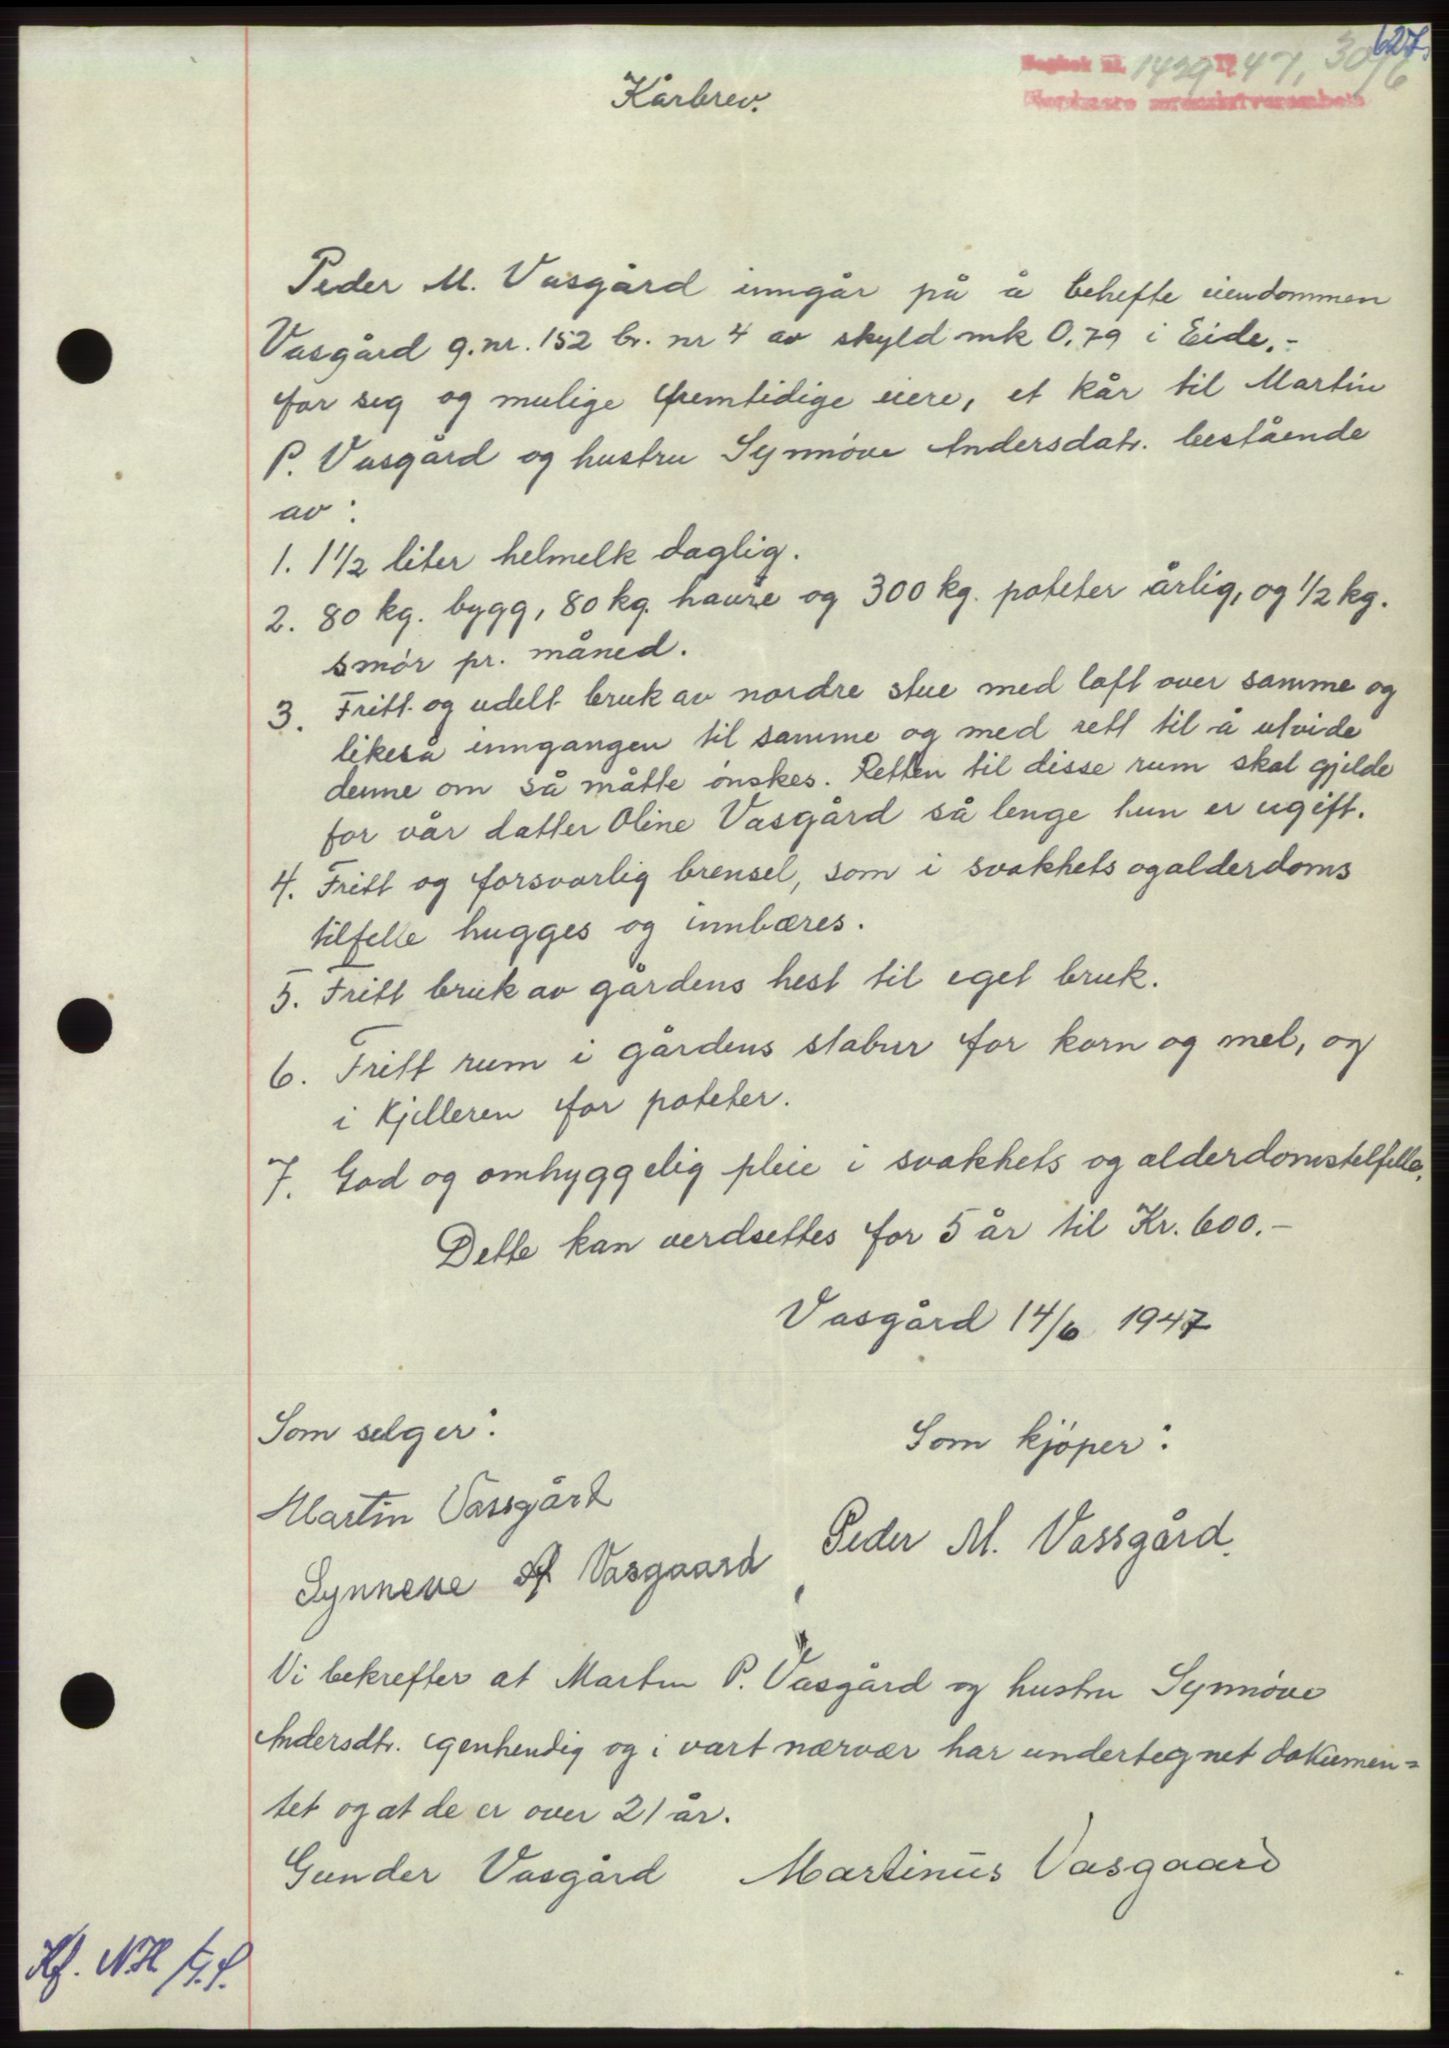 627.
Dagbok nr. 1429 19 47, 30/6
Nordmøre sorenskriverembete
Kårbrev.
Peder M. Vasgård inngår på å behefte eiendommen
Vasgård g.nr. 152 br. nr 4 av skyld mk 0,79 i Eide.-
for seg og mulige fremtidige eiere, et kår til Martin
P. Vasgård og hustru Synnöve Andersdatr. bestående
av:
1. 1 1/2 liter helmelk daglig.
2. 80 kg. bygg, 80 kg. havre og 300 kg. poteter årlig, og 1/2 kg.
smör pr. måned.
3. Fritt og udelt bruk av nordre stue med loft over samme og
likeså inngangen til samme og med rett til å utvide
denne om så måtte önskes. Retten til disse rum skal gjelde
for vår datter Oline Vasgård så lenge hun er ugift.
4. Fritt og forsvarlig brensel, som i svakhets og alderdoms
tilfelle hugges og innbæres.
5. Fritt bruk av gårdens hest til eget bruk.
6. Fritt rum i gårdens stabur for korn og mel, og
i kjelleren for poteter.
7. God og omhyggelig pleie i svakhets og alderdomstilfelle.
Dette kan verdsettes for 5 år til Kr. 600.-
Vasgård 14/6 1947
Som selger:
Som kjöper:
Martin Vassgård
Peder M. Vassgård.
Synneve A Vasgaard
Vi bekrefter at Martin P. Vasgård og hustru Synnöve
Andersdtr. egenhendig og i vårt nærvær har undertegnet dokumen=
tet og at de er over 21 år.
Gunder Vasgård Martinus Vasgaard
Kf. NH /G.S.